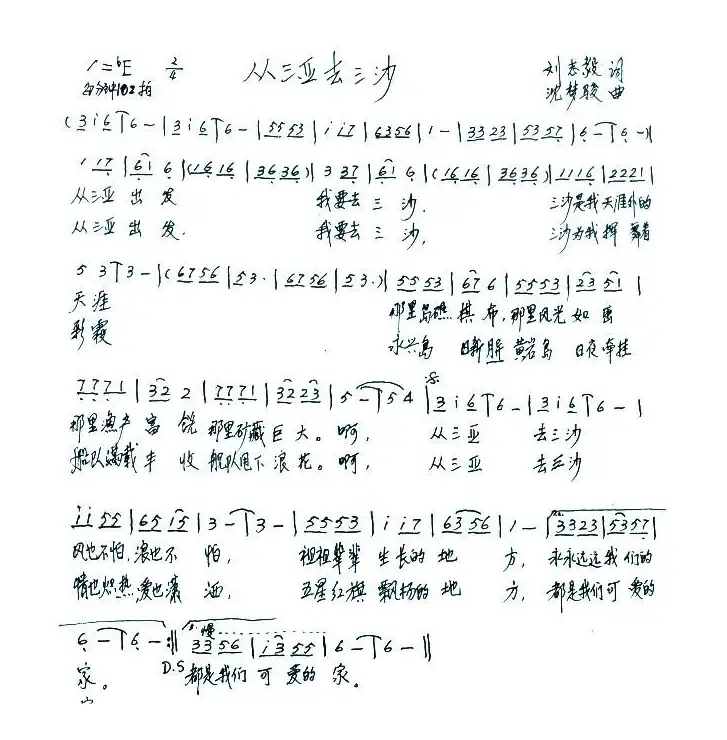 1=♭E 2/4 从三亚去三沙 刘志毅 词
每分钟102拍 沈梦骏 曲
(3 i 6 | 6 - | 3 i 6 | 6 - | 5553 | i i7 | 6356 | 1 - | 3323 | 5357 | 6 - | 6 - )|
1 17 | 61 6 | (1616 | 3636) | 3 37 | 61 6 | (1616 | 3636) | 1116 | 2221 |
从三亚 出 发 我要去 三 沙. 三沙是我天涯外的
从三亚 出 发. 我要去 三 沙, 三沙为我挥舞着
5 3 | 3 - | (6756 | 53· | 6756 | 53·) | 5553 | 67 6 | 5553 | 23 51 |
天涯 那里岛礁 棋 布,那里风光 如 画
彩霞 永兴岛 日新 黄岩岛 日夜牵挂
7771 | 32 2 | 7771 | 32 23 | 5 - | 5 4 | 3 i 6 | 6 - | 3 i 6 | 6 - |
那里渔产 富 饶 那里矿藏 巨 大。啊, 从三亚 去三沙
船队满载 丰 收 舰队甩下 浪 花。啊, 从三亚 去三沙
i i 55 | 65 i5 | 3 - | 3 - | 5553 | i i7 | 63 56 | 1 - | 3323 | 5357 |
风也不怕,浪也不 怕, 祖祖辈辈 生长的 地 方, 永永远远我们的
情也炽热 爱也潇 洒, 五星红旗 飘扬的 地 方, 都是我们可 爱的
6 - | 6 - :‖ 2. 慢 3356 | i3 55 | 6 - | 6 - ‖
家。 D.S 都是我们 可 爱的 家。